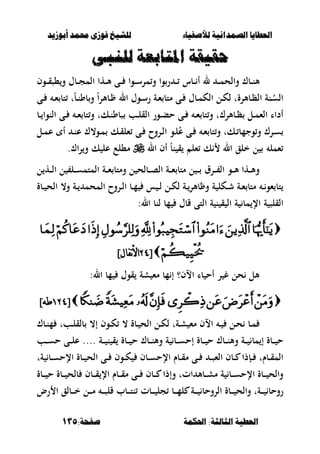 العطايا الصمدانية للأصفياء للشيخ فوزى محمد أبوزيد
حقيقة المتابعة للنبى
هنـاك والحمـد لله أنـاس تـدربوا وتمرسـوا فـى هـذا المجـال ويطبقـون
السُّنة الظاهرة، لكـن الكمـال فـى متابعـة رسـول الله ظـاهراً وباطنـاً، تتابعـه فـى
أداء العمـل بظـاهرك، وتتابعـه فـى حضـور القلـب بباطنـك، وتتابعـه فـى النوايـا
بسـرك وتوجهاتـك، وتتابعـه فـى عُلـو الـروح فـى تعلقـك بمـولاك عنـد أى عمـل
تعمله بين خلق الله لأنك تعلم يقيناً أن الله ﷺ مطلع عليك ويراك.
وهـذا هـو الفـرق بـين متابعـة الصـالحين ومتابعـة المتمسـلفين الـذين
يتابعونـه متابعـة شـكلية وظاهريـة لكـن لـيس فيهـا الـروح المحمديـة ولا الحيـاة
القلبية الإيمانية اليقينية التى قال فيها لنا الله:
﴿ يَٰٓأَيُّهَا ٱلَّذِينَ ءَامَنُوا۟ ٱسْتَجِيبُوا۟ لِلَّهِ وَلِلرَّسُولِ إِذَا دَعَاكُمْ لِمَا
يُحْيِيكُمْ ﴾ [٢٤الأنفال]
هل نحن غير أحياء الآن؟ إنها معيشة يقول فيها الله:
﴿ وَمَنْ أَعْرَضَ عَن ذِكْرِى فَإِنَّ لَهُۥ مَعِيشَةً ضَنكًا ﴾ [١٢٤طه]
فمـا نحـن فيـه الآن معيشـة، لكـن الحيـاة لا تكـون إلا بالقلـب، فهنـاك
حيـاة إيمانيـة وهنـاك حيـاة إحسـانية وهنـاك حيـاة يقينيـة .... علـى حسـب
المقـام، فـإذا كـان العبـد فـى مقـام الإحسـان فيكـون فـى الحيـاة الإحسـانية،
والحيـاة الإحسـانية مشـاهدات، وإذا كـان فـى مقـام الإيقـان فالحيـاة حيـاة
روحانيـة، والحيـاة الروحانيـة كلهـا تجليـات تنتـاب قلبـه مـن خـالق الأرض
العطية الثالثة: الحكمة صفحة:١٣٥